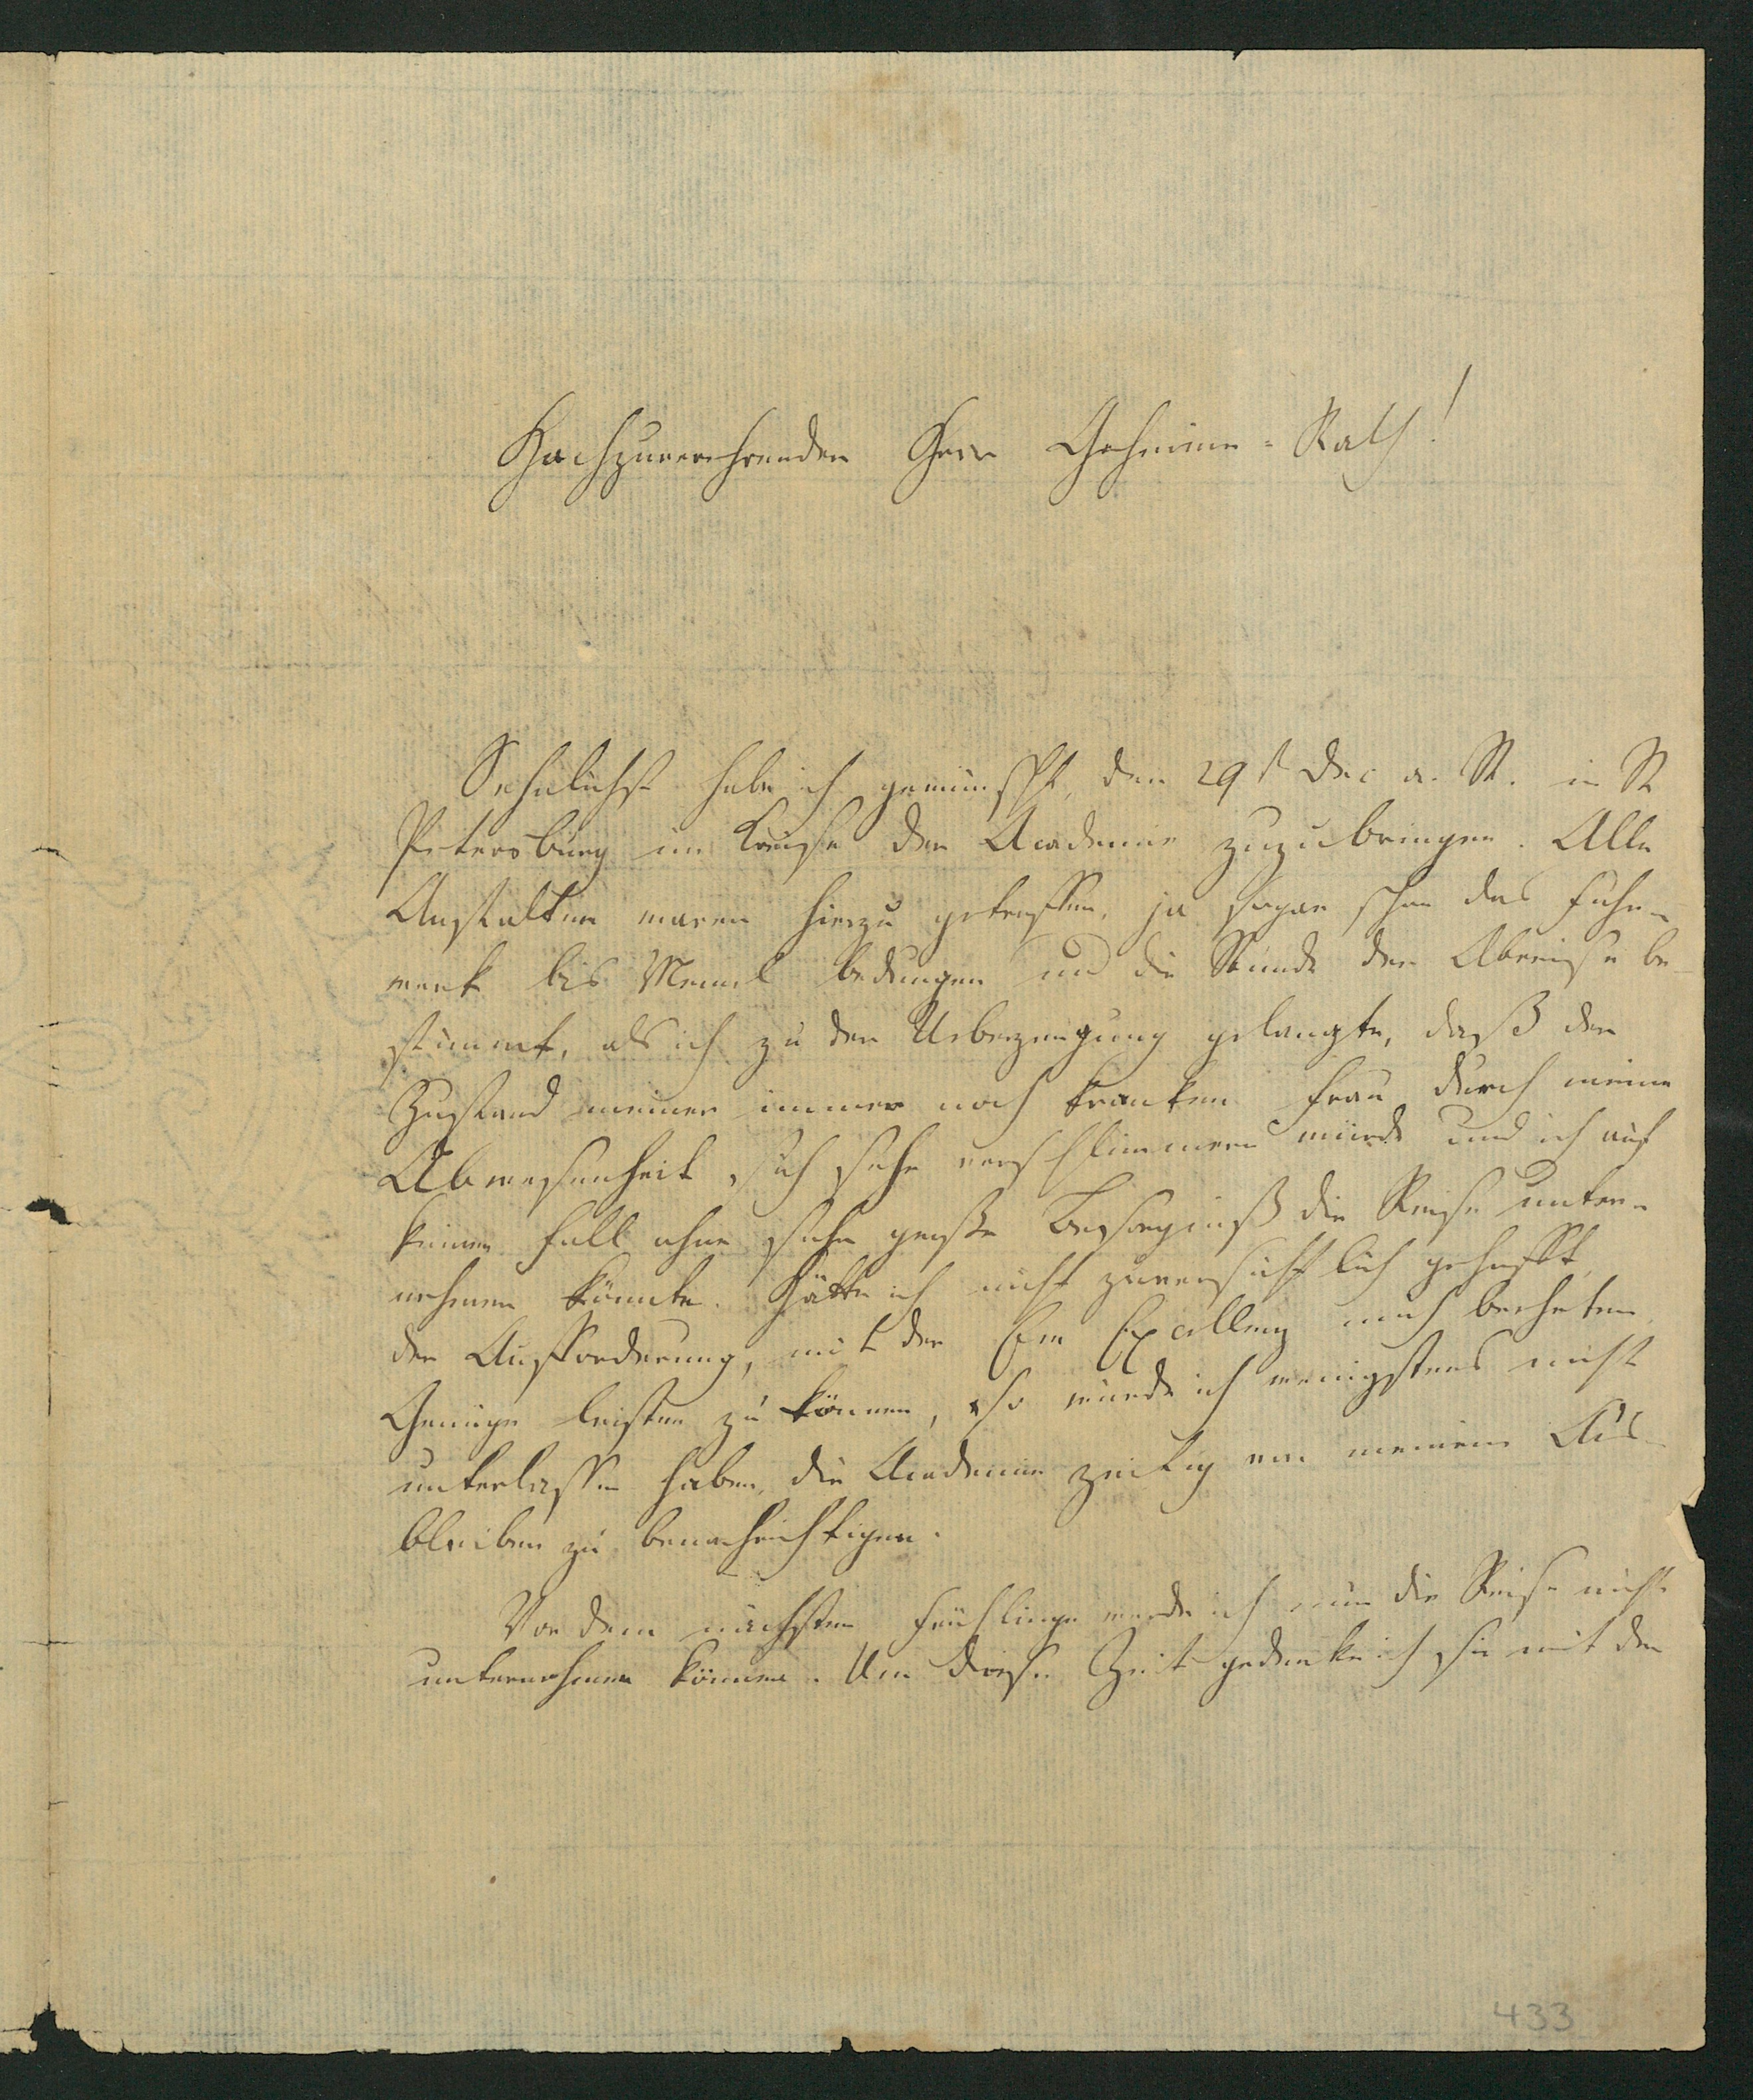 Hochzuverehrender Herr Geheime-Rath!
Sehnlichst habe ich gewünscht, den 29st Dec a. St. in St
Petersburg im Kreise der Academie zuzubringen. Alle
Anstalten waren hierzu getroffen, ja sogar schon das Fuhr-
werk bis Memel bedungen und die Stunde der Abreise be-
stimmt, als ich zu der Ueberzeugung gelangte, daß der
Zustand meiner immer noch kranken Frau durch meine
Abwesenheit sich sehr verschlimmern würde und ich auf
keinen Fall ohne sehr große Besorgniß die Reise unter-
nehmen könnte. Hätte ich nicht zuversichtlich gehofft,
der Aufforderung, mit der Ew Excellenz mich beehrten,
Genüge leisten zu können, so würde ich wenigstens nicht
unterlassen haben, die Academie zeitig von meinem Aus-
bleiben zu benachrichtigen.
Vor dem nächsten Frühlinge werde ich nun die Reise nicht
unternehmen können. Um diese Zeit gedenke ich sie mit der
433